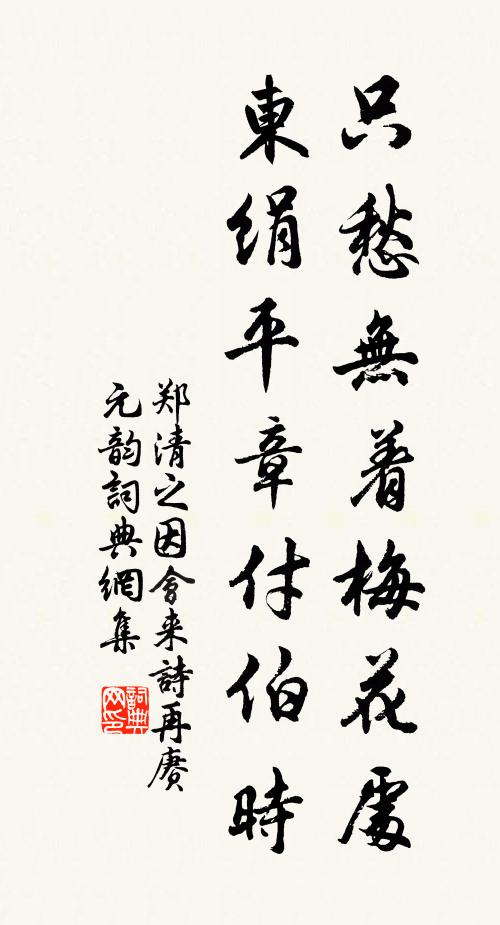 只愁無着梅花處
東絹平章付伯時
郑清之因會来詩再賡
元韵詞典網集
詞典网印